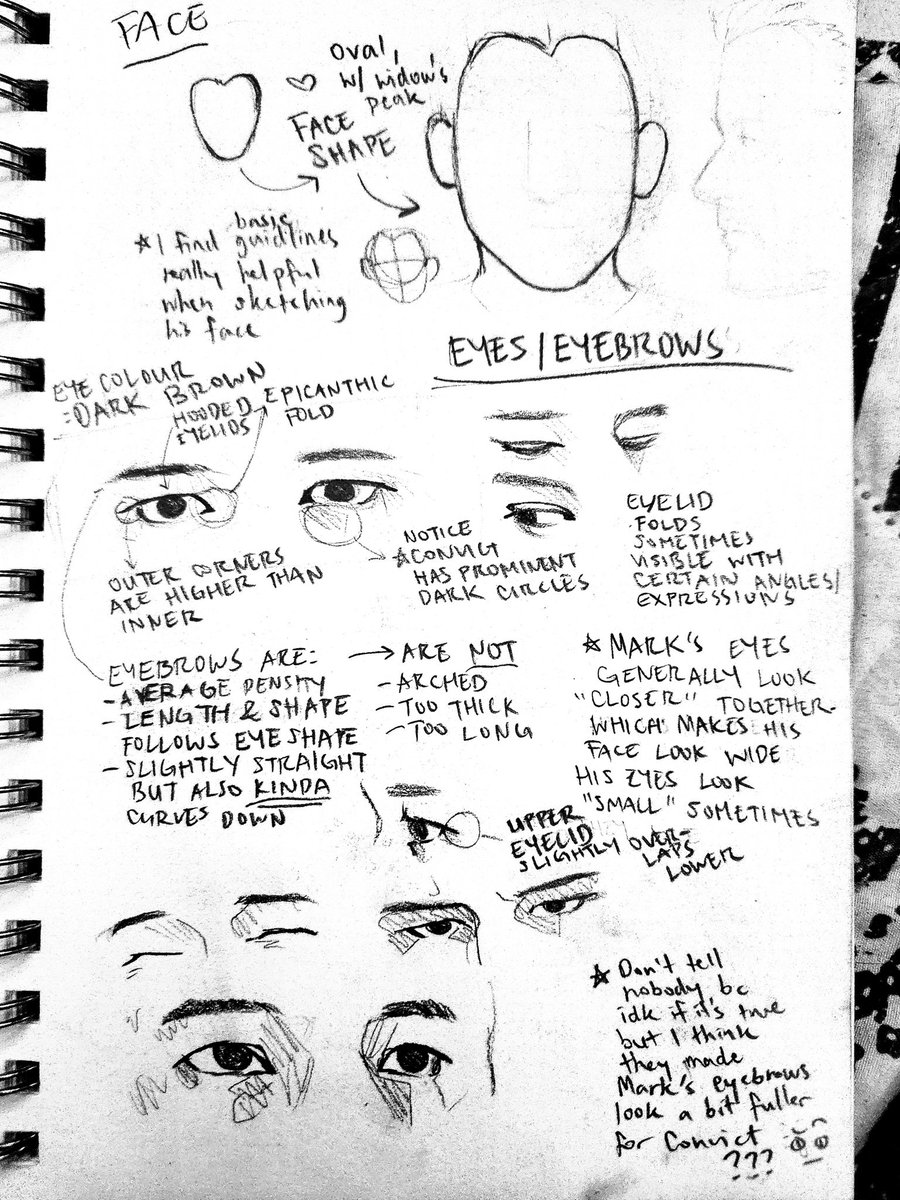 FACE
Oval,
w/ widow's
peak
FACE
SHAPE
☆ I find basic guidlines
really helpful
when sketching
his face
EYES/EYEBROWS
EYE COLOUR
= DARK BROWN
HOODED
EYELIDS
EPICANTHIC
FOLD
OUTER CORNERS
ARE HIGHER THAN
INNER
NOTICE
☆ CONVICT
HAS PROMINENT
DARK CIRCLES
EYELID
FOLDS
SOMETIMES
VISIBLE WITH
CERTAIN ANGLES/
EXPRESSIONS
EYEBROWS ARE:
- AVERAGE DENSITY
- LENGTH & SHAPE
FOLLOWS EYE SHAPE
- SLIGHTLY STRAIGHT
BUT ALSO KINDA
CURVES DOWN
→ ARE NOT
- ARCHED
- TOO THICK
- TOO LONG
☆ MARK'S EYES
GENERALLY LOOK
"CLOSER" TOGETHER.
WHICH MAKES HIS
FACE LOOK WIDE
HIS EYES LOOK
"SMALL" SOMETIMES
UPPER
EYELID
SLIGHTLY OVER-
LAPS
LOWER
☆ Don't tell
nobody bc
idk if it's true
but I think
they made
Mark's eyebrows
look a bit fuller
for Convict
???